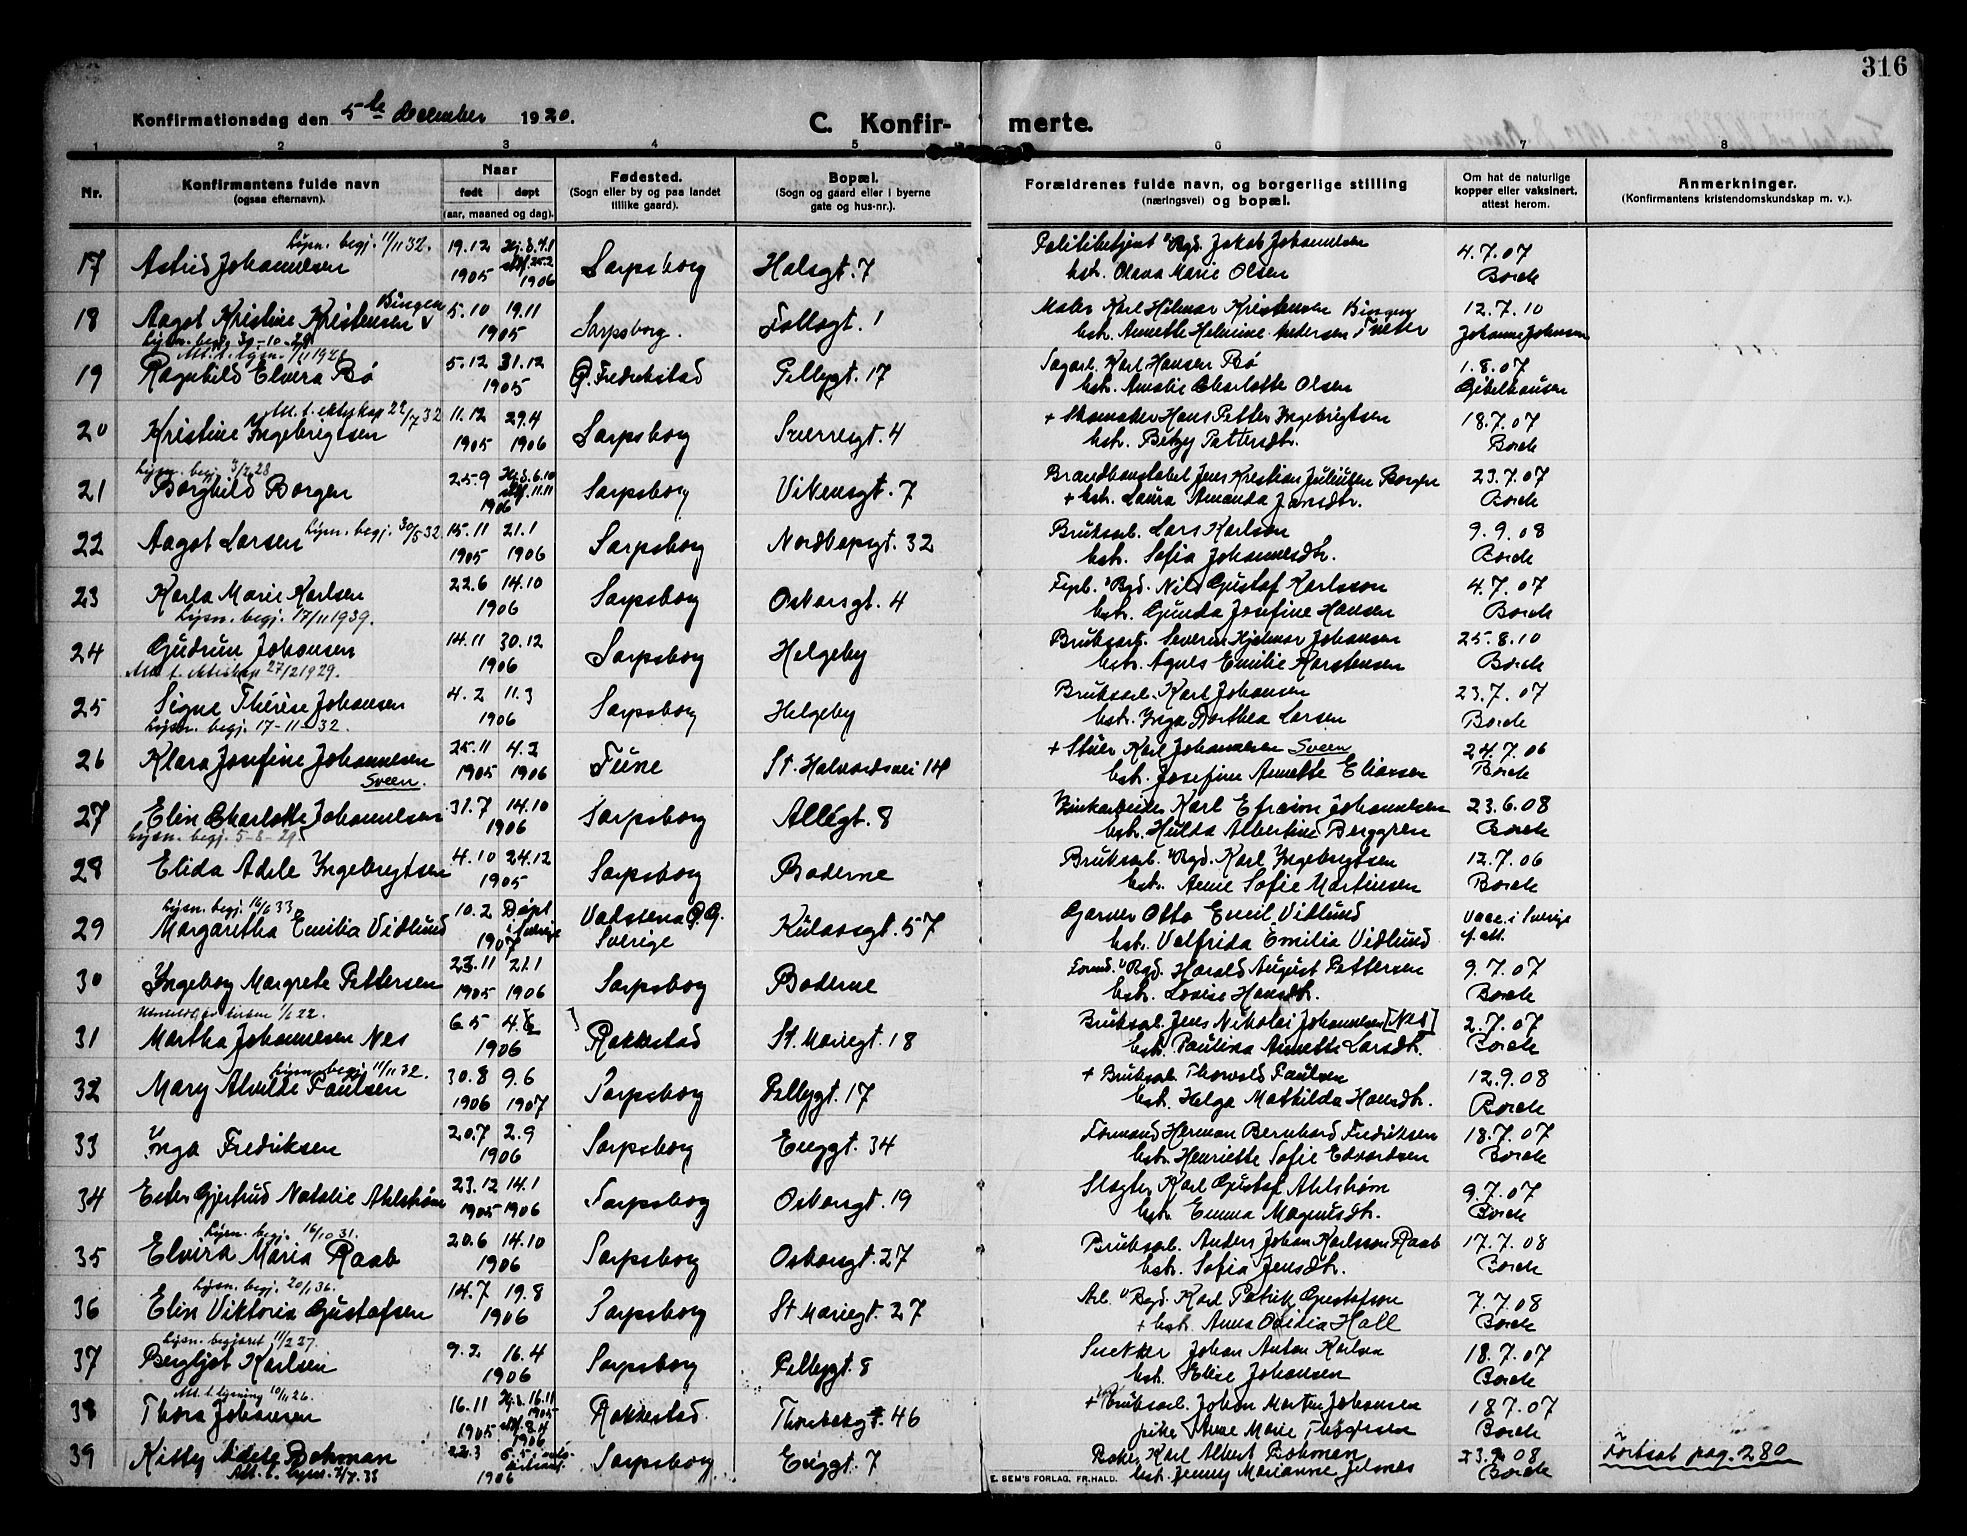 316
Konfirmationsdag den 5te december 1920.
C. Konfirmerte.
1 2 3 4 5 6 7 8
Nr. Konfirmantens fulde navn (ogsaa efternavn). Naar født døpt (aar, maaned og dag). Fødested. (Sogn eller by og paa landet tillike gaard). Bopæl. (Sogn og gaard eller i byerne gate og hus-nr.). Forældrenes fulde navn, og borgerlige stilling (næringsvei) og bopæl. Om hat de naturlige kopper eller vaksinert, attest herom. Anmerkninger. (Konfirmantens kristendomskundskap m. v.).
Lysn. begj. 11/11 32. 19.12 Hj.d. 7.1 Politibetjent Jakob Johannesen 4.7.07
17 Astrid Johannesen 1905 stdf. 25.2 1906 Sarpsborg Halsgt. 7 hstr. Olava Marie Olsen Borch
Bingen 5.10 19.11 Maler Karl Hilmar Kristensen Bingen 12.7.10
18 Aagot Kristine Kristensen 1905 Sarpsborg. Follogt. 1 hstr. Annette Helmine Andersen Tveter Johanne Johnsen
Lysn. begj. 30-10-28
Att. t. lysn. 1/11 1926 5.12 31.12 Sagarb. Karl Hansen Bø 1.8.07
19 Ragnhild Elvera Bø 1905 Ø. Fredrikstad Pellygt. 17 hstr. Amalie Charlotte Olsen Gibelhausen
Att. t. ekteskap 22/7 32 11.12 29.4 + Skomaker Hans Petter Ingebrigtsen 18.7.07
20 Kristine Ingebrigtsen 1905 1906 Sarpsborg Sverregt. 4 hstr. Betzy Pettersdtr. Borch
Lysn. begj. 3/7 28 25.9 Hj.d. 6.10 Brandkonstabel Jens Kristian Julius Borgen 23.7.07
21 Borghild Borgen stdf. 11.11 1906 Sarpsborg Vikensgt. 7 + hstr. Laura Amanda Jansdtr. Borch
Lysn. begj. 30/5 32 15.11 21.1 Bruksarb. Lars Karlson 9.9.08
22 Aagot Larsen 1905 1906 Sarpsborg Nordbapsgt. 32 hstr. Sofia Johannesdtr. Borch
22.6 14.10 Nils Gustaf Karlsson 4.7.07
23 Karla Marie Karlsen 1906 Sarpsborg Oskarsgt. 4 hstr. Gunda Josefine Hansen Borch
Lysn. begj. 17/11 1939.
14.11 30.12 Bruksarb. Severin Hjelmar Johansen 25.8.10
24 Gudrun Johansen 1906 Sarpsborg Helgeby hstr. Agnes Emilie Karstensen Borch
Att. t. ekteskap 27/2 1929.
4.2 11.3 Bruksarb. Karl Johansen 23.7.07
25 Signe Therese Johansen 1906 Sarpsborg Helgeby hstr. Inga Dorthea Larsen Borch
Lysn. begj. 17-11-32.
25.11 4.2 + Stuer Karl Johannesen Sveen 24.7.06
26 Klara Josefine Johannesen 1905 1906 Tune St. Halvardsvei 14 hstr. Josefine Annette Eliassen Borch
Sveen.
31.7 14.10 Karl Efraim Johannesen 23.6.08
27 Elin Charlotte Johannesen 1906 Sarpsborg Allégt. 8 hstr. Hulda Albertine Berggren Borch
Lysn. begj. 5-8-29
4.10 24.12 Bruksarb. Karl Ingebrigtsen 12.7.06
28 Elida Adele Ingebrigtsen 1905 Sarpsborg Baderne hstr. Anne Sofie Martinsen Borch
Lysn. begj. 16/6 33 10.2 Døpt i Sverige Garver Otto Emil Vidlund Vacc. i Sverige
29 Margaretha Emilia Vidlund 1907 Vadstena Ø.G. Sverige Kulaasgt. 57 hstr. Valfrida Emilia Vidlund f. att.
23.11 21.1 Formd. Harald August Pettersen 9.7.07
30 Ingeborg Margrete Pettersen 1905 1906 Sarpsborg Baderne hstr. Lovise Hansdtr. Borch
Utmeldt av kirken 1/6 22. 6.5 4.6 Bruksarb. Jens Nikolai Johannesen [Nes] 2.7.07
31 Martha Johannesen Nes 1906 Rakkestad St. Mariegt. 18 hstr. Paulina Annette Larsdtr. Borch
Lysn. begj. 11/11 32. 30.8 9.6 + Bruksarb. Thorvald Paulsen 12.9.08
32 Mary Alvilde Paulsen 1906 1907 Sarpsborg Pellygt. 17 hstr. Helga Mathilda Hansdtr. Borch
20.7 2.9 Formand Herman Bernhard Fredriksen 18.7.07
33 Inga Fredriksen 1906 Sarpsborg Enggt. 34 hstr. Henriette Sofie Edvardsen Borch
23.12 14.1 Slagter Karl Gustaf Ahlstrøm 9.7.07
34 Ester Gjertrud Natalie Ahlstrøm 1905 1906 Sarpsborg Oskarsgt. 19 hstr. Emma Magnusdtr. Borch
Lysn. begj. 16/10 31. 20.6 14.10 Bruksarb. Anders Johan Karlsson Raab 17.7.08
35 Elvera Maria Raab 1906 Sarpsborg Oskarsgt. 27 hstr. Sofia Jensdtr. Borch
Lysn. begj. 20/1 36. 14.7 19.8 Arb. Karl Patrik Gustafson 7.7.08
36 Elin Viktoria Gustafsen 1906 Sarpsborg St Mariegt. 27 + hstr. Anna Ovidia Hall Borch
Lysn. begjæret 11/2 27. 9.2 16.4 Snekker Johan Anton Karlsen 18.7.07
37 Bergljot Karlsen 1906 Sarpsborg Pellygt 8 hstr. Elise Johansen Borch
Att. t. lysning 10/11 26. 16.11 Hj.d. 16.11 1905 + Bruksarb. Johan Martin Johansen 18.7.07
38 Thora Johansen 1905 stdf. 8.4 1906 Rakkestad. Thorsbergt. 46 pike Anne Marie Borch
22.3 6.5 Baker Karl Albert Bohman 23.9.08
39 Kitty Adele Bohman 1906 Sarpsborg Enggt. 7 hstr. Jenny Marianne Jelsnes Borch
Att. t. lysn. 7/7 33
Fortsat pag. 280
E. SEM'S FORLAG, FR.HALD.